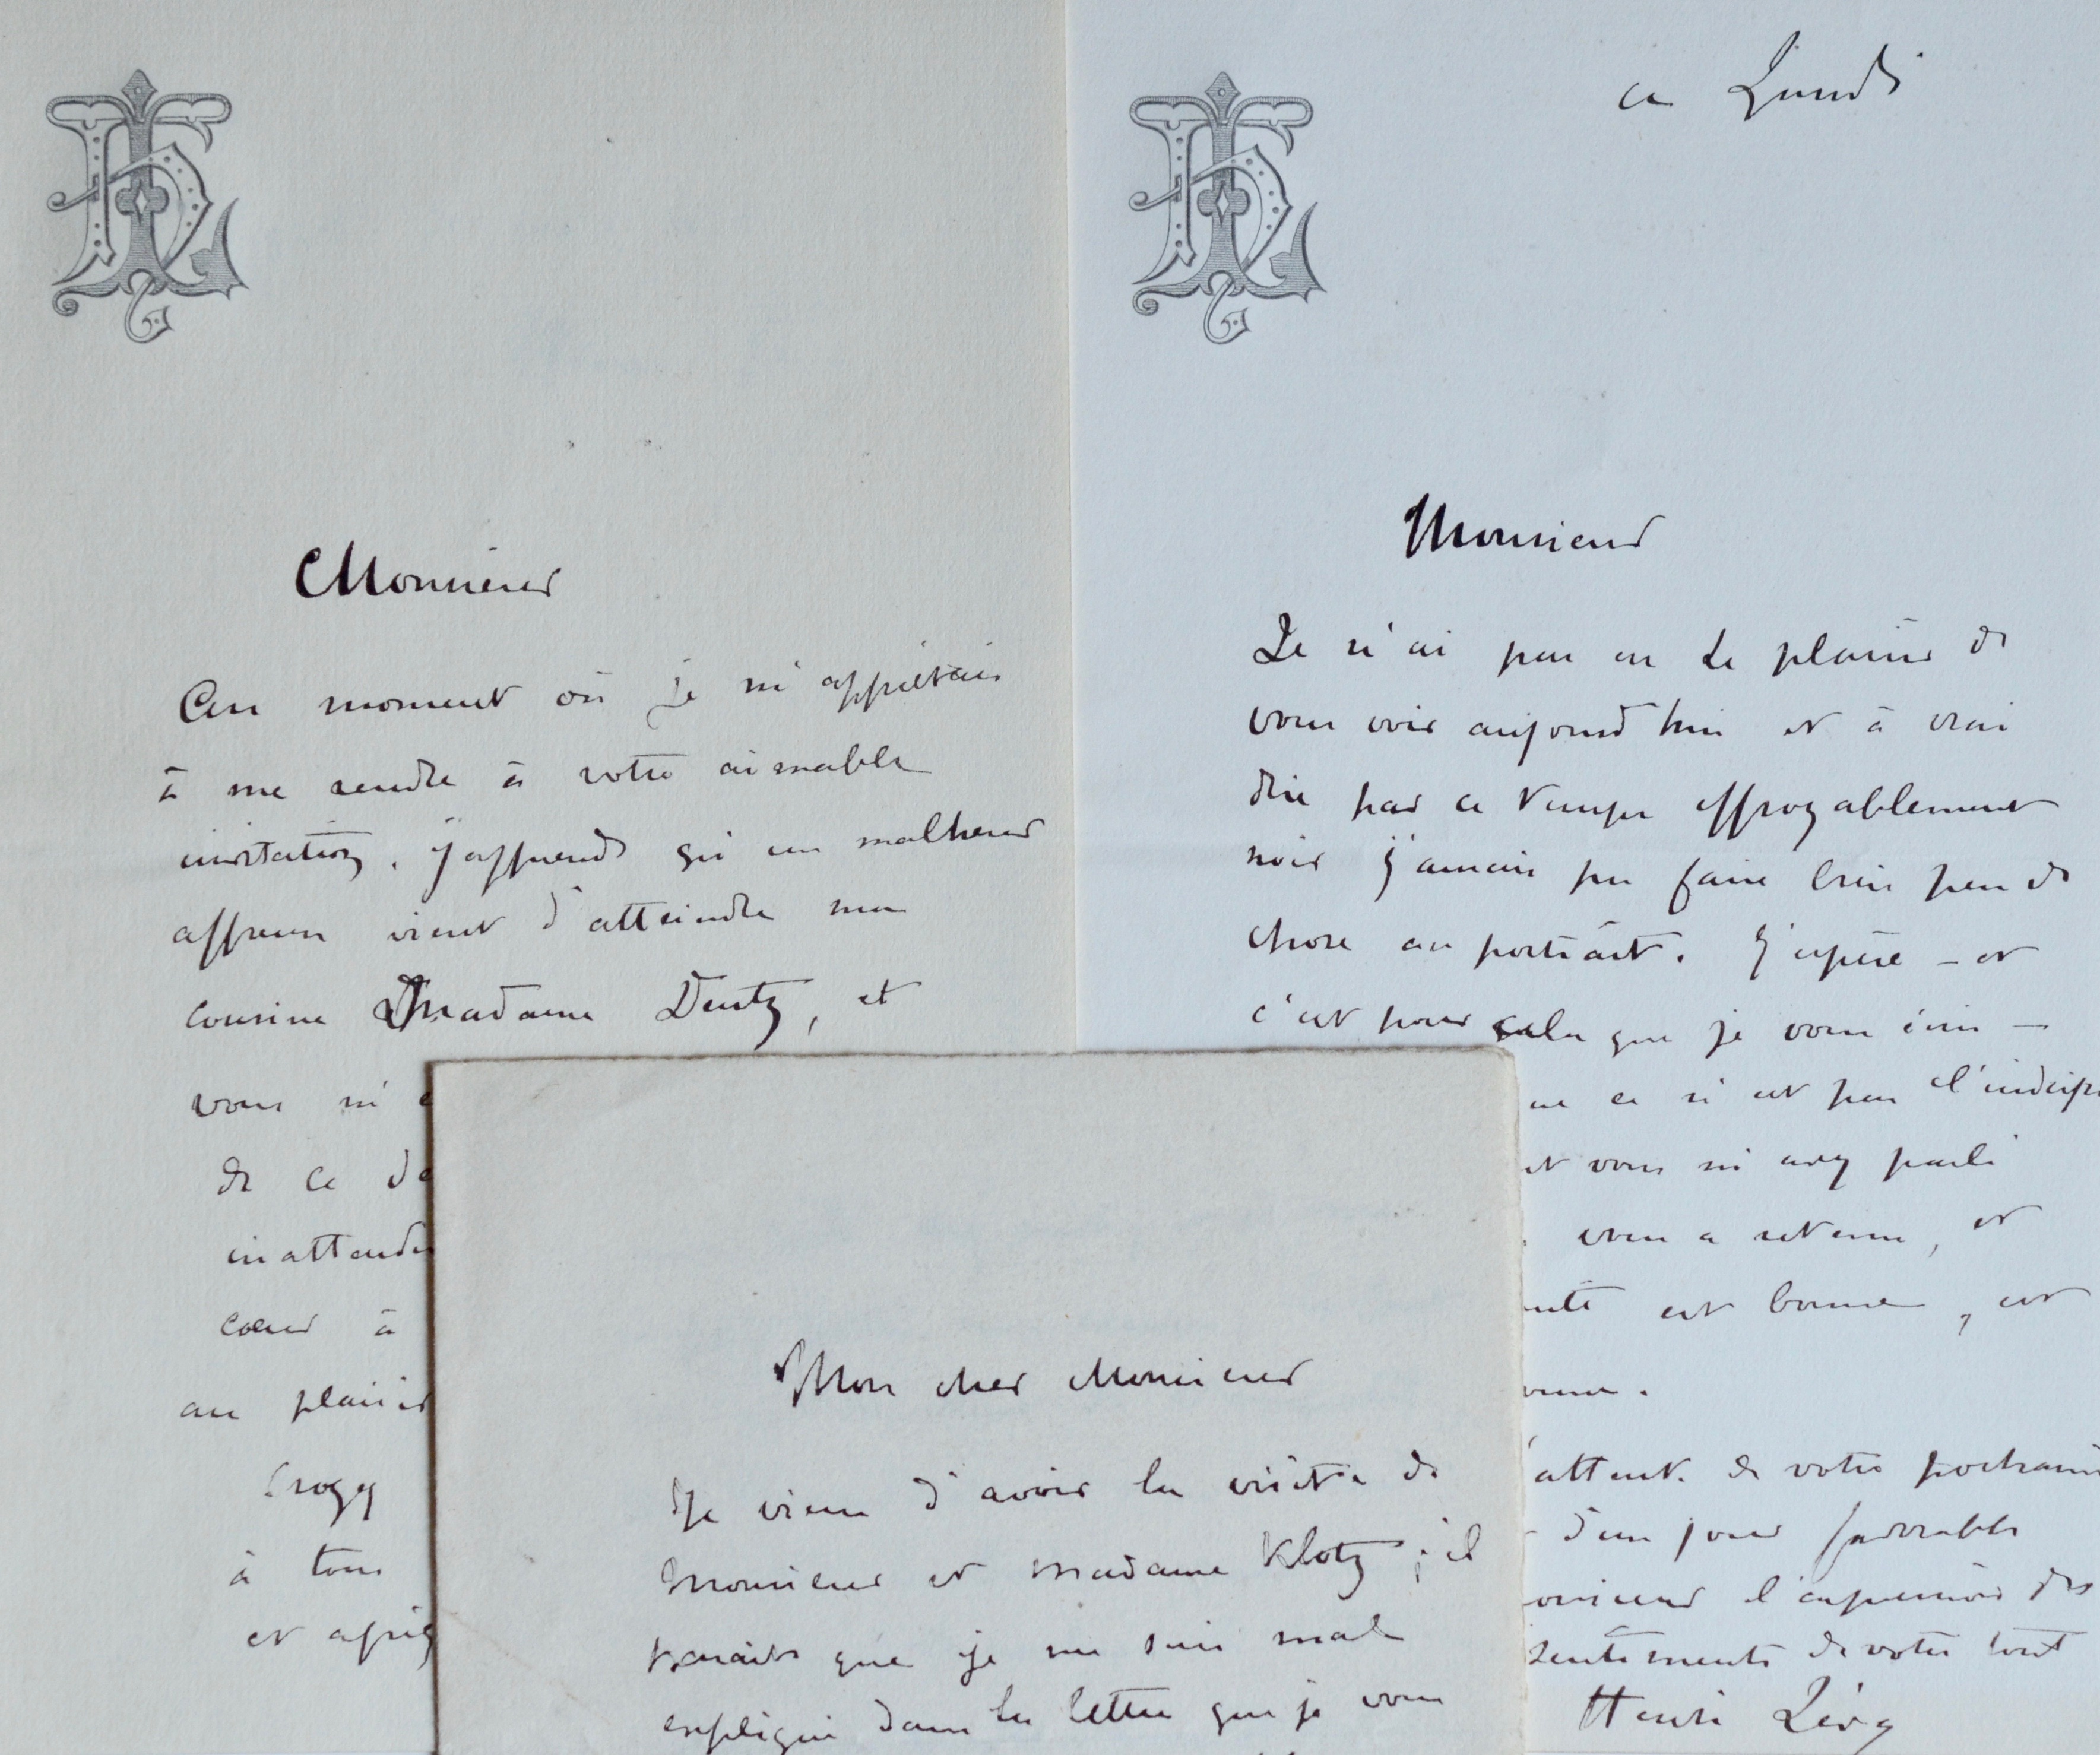 HL
Monsieur
Au moment où je m'apprêtais
à me rendre à votre aimable
invitation, j'apprends qu'un malheur
affreux vient d'atteindre ma
cousine Madame Deutz, et
vous m'
de ce
inattendu
coeur à
au plaisir
à tous
et
HL
ce Lundi
Monsieur
Je n'ai pas eu le plaisir de
vous voir aujourd'hui et à vrai
dire par ce temps effroyablement
noir j'aurais pu faire bien peu de
chose au portrait. J'espère – et
c'est pour cela que je vous écris –
ce n'est pas l'indisp
vous m'avez parlé
vous a retenu, et
est bonne, et
attente de votre prochaine
d'un jour favorable
l'expression des
sentiments de votre tout
Henri Lévy
Mon cher Monsieur
Je viens d'avoir la visite de
Monsieur et Madame Klotz ; il
paraît que je me suis mal
expliqué dans la lettre que je vous